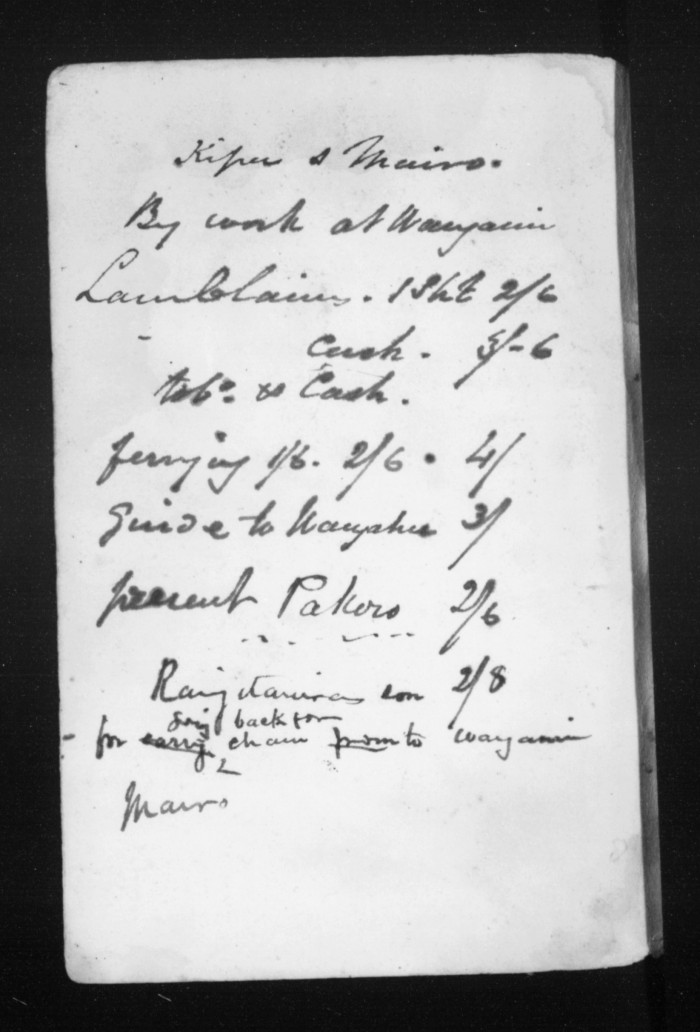 Kipa & Mairo.
By work at Wanganui
Lambclaims. 1 Sht 2/6
Cash. 5/-6
tobo. & Cash.
ferrying 1/6. 2/6. 4/
Guide to Wangahu 3/
present Pakoro 2/6
Rangitaurira son 2/8
going back for
for carrying chain from to wanganui
Mairo